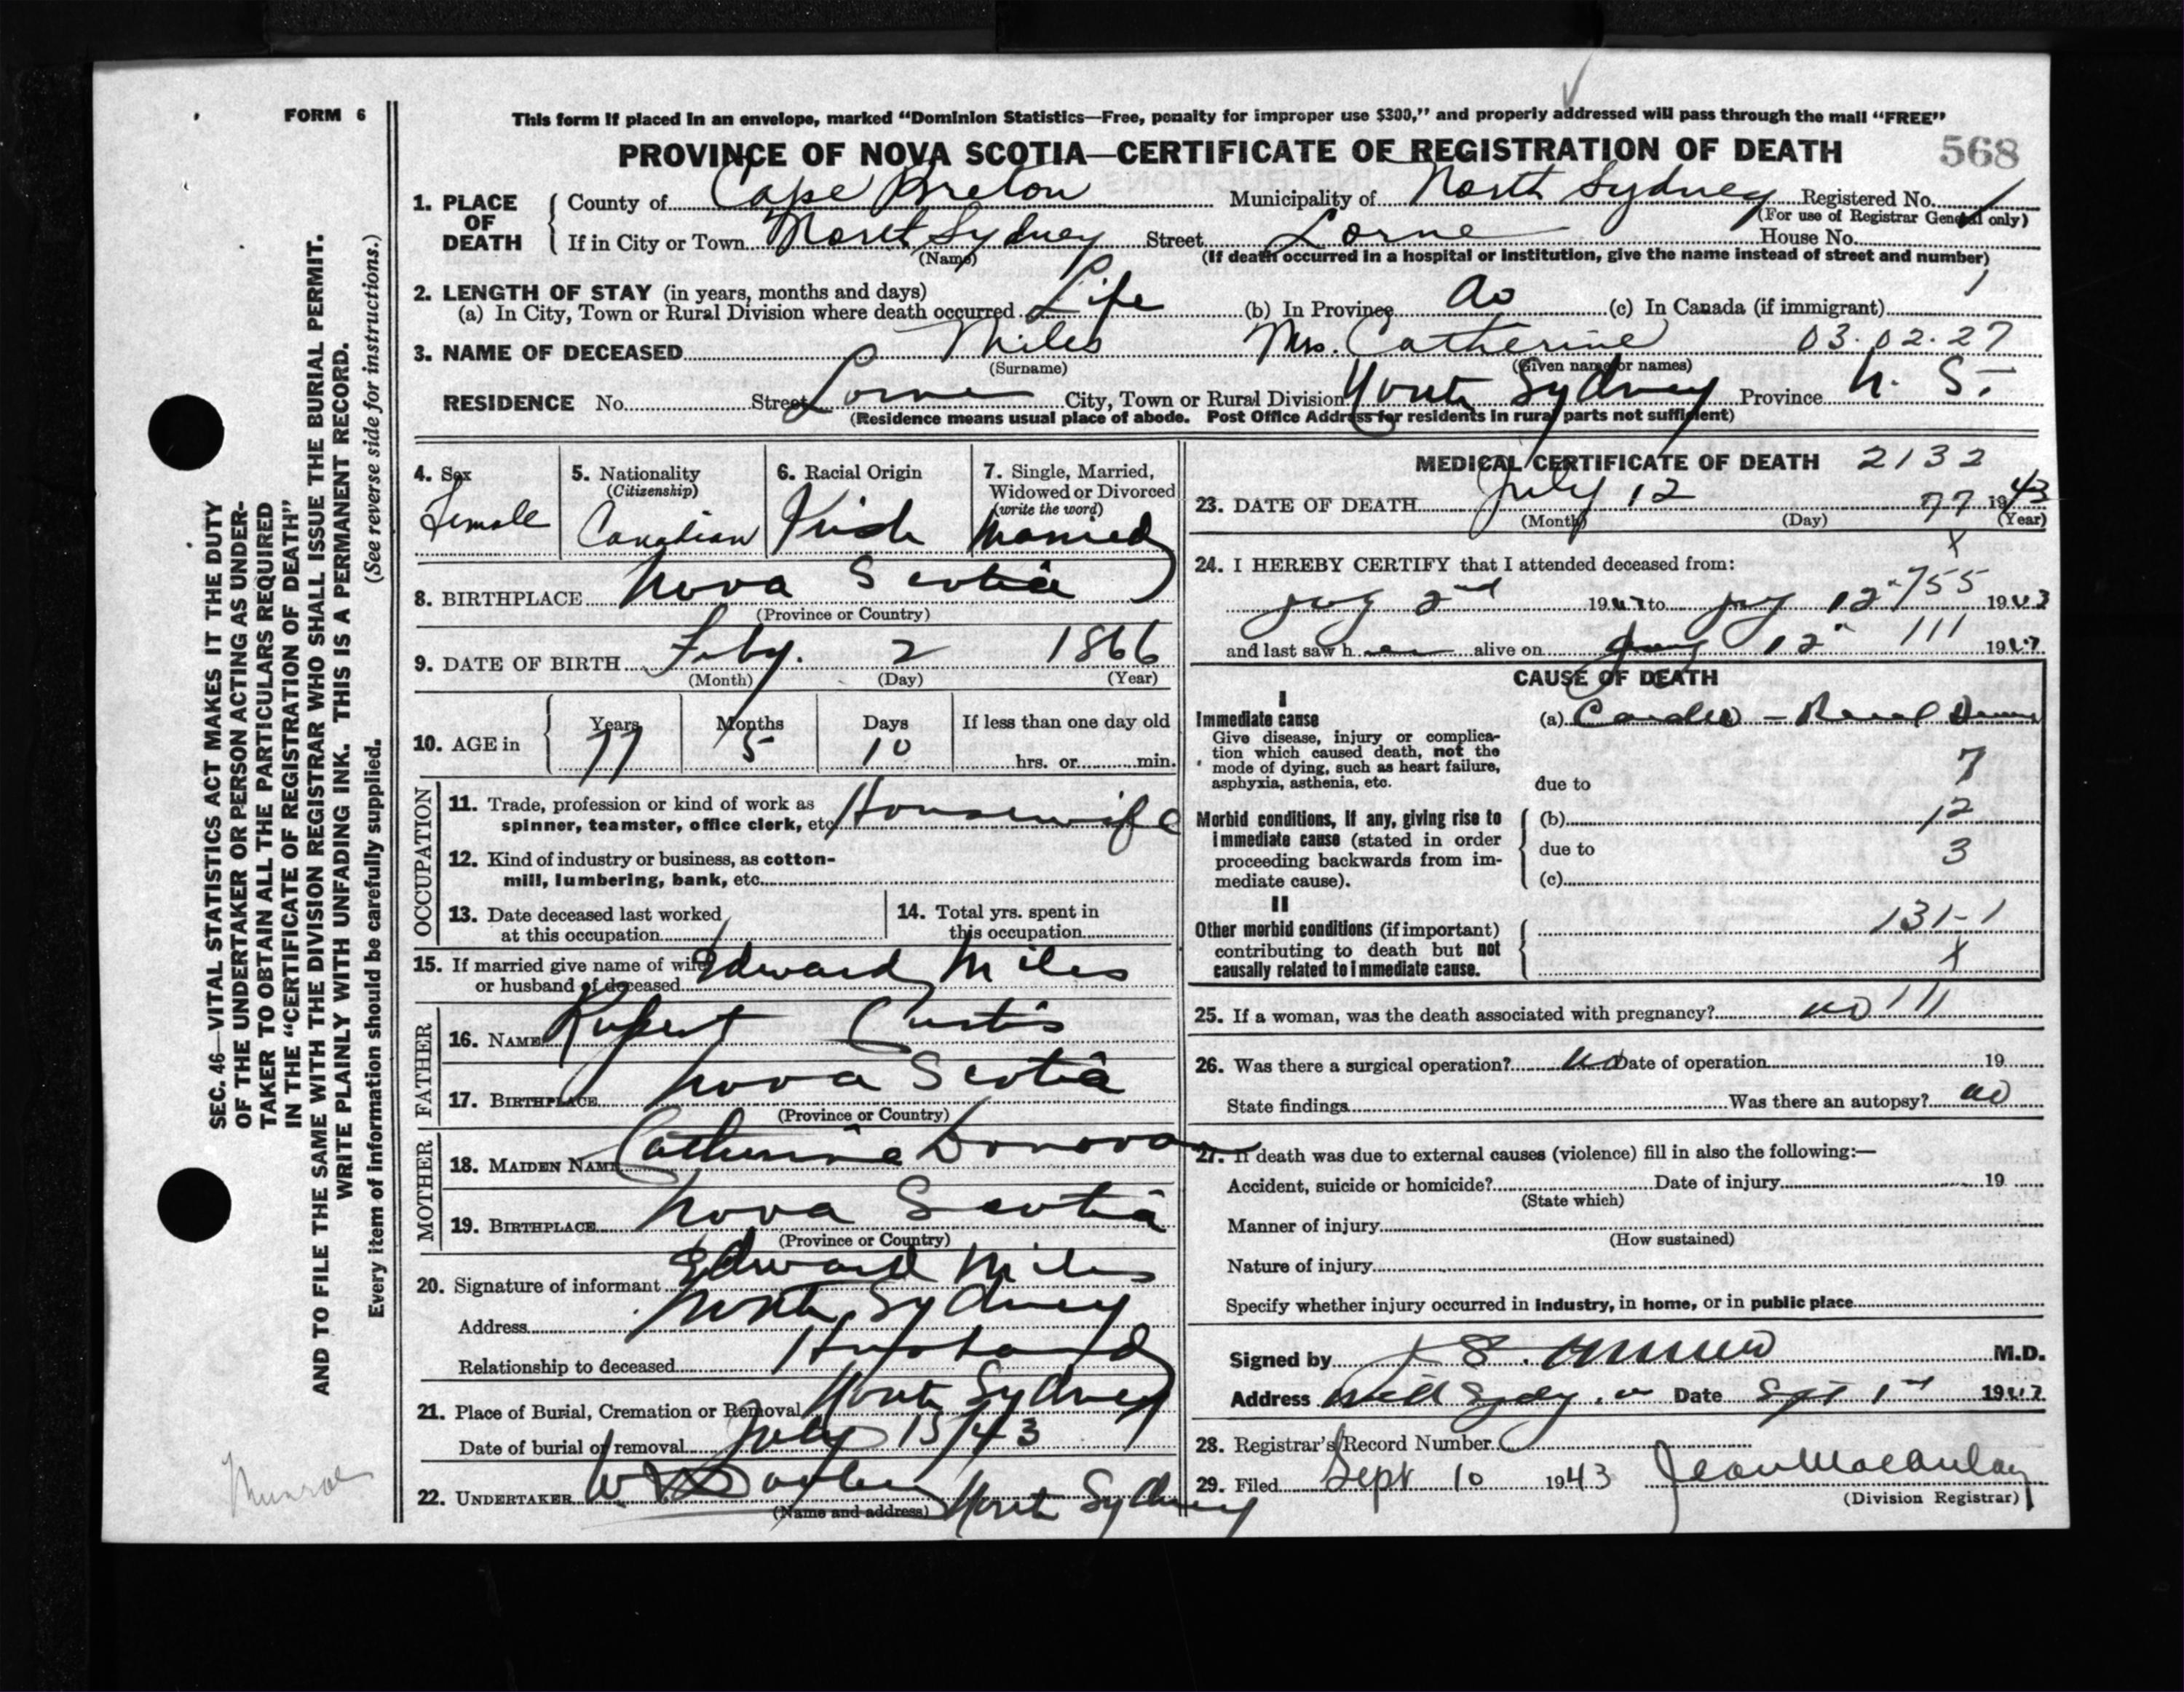 FORM 6
This form if placed in an envelope, marked “Dominion Statistics—Free, penalty for improper use $300,” and properly addressed will pass through the mail “FREE”
PROVINCE OF NOVA SCOTIA—CERTIFICATE OF REGISTRATION OF DEATH 568
1. PLACE OF DEATH
County of Cape Breton Municipality of North Sydney Registered No.
(For use of Registrar General only)
If in City or Town North Sydney Street Lorne House No.
(Name) (If death occurred in a hospital or institution, give the name instead of street and number)
2. LENGTH OF STAY (in years, months and days)
(a) In City, Town or Rural Division where death occurred Life (b) In Province do (c) In Canada (if immigrant) 1
3. NAME OF DECEASED Miles Mrs. Catherine 03.02.27
(Surname) (Given name or names)
RESIDENCE No. Street Lorne City, Town or Rural Division North Sydney Province N. S.
(Residence means usual place of abode. Post Office Address for residents in rural parts not sufficient)
4. Sex
Female
5. Nationality
(Citizenship)
Canadian
6. Racial Origin
Irish
7. Single, Married,
Widowed or Divorced
(write the word)
Married
8. BIRTHPLACE Nova Scotia
(Province or Country)
9. DATE OF BIRTH Feby. 2 1866
(Month) (Day) (Year)
10. AGE in
Years Months Days If less than one day old
77 5 10 hrs. or min.
OCCUPATION
11. Trade, profession or kind of work as
spinner, teamster, office clerk, etc. Housewife
12. Kind of industry or business, as cotton-
mill, lumbering, bank, etc.
13. Date deceased last worked
at this occupation
14. Total yrs. spent in
this occupation
15. If married give name of wife
or husband of deceased Edward Miles
FATHER
16. NAME Rupert Curtis
17. BIRTHPLACE Nova Scotia
(Province or Country)
MOTHER
18. MAIDEN NAME Catherine Donovan
19. BIRTHPLACE Nova Scotia
(Province or Country)
20. Signature of informant Edward Miles
Address North Sydney
Relationship to deceased Husband
21. Place of Burial, Cremation or Removal North Sydney
Date of burial or removal July 15/43
22. UNDERTAKER W. North Sydney
(Name and address)
MEDICAL CERTIFICATE OF DEATH 2132
23. DATE OF DEATH July 12 77 1943
(Month) (Day) (Year)
X
24. I HEREBY CERTIFY that I attended deceased from:
2nd 19 to 12" 755 1943
and last saw h alive on 12" 111 19
CAUSE OF DEATH
I
Immediate cause
Give disease, injury or complica-
tion which caused death, not the
mode of dying, such as heart failure,
asphyxia, asthenia, etc.
(a) Cardio - Renal
due to 7
Morbid conditions, if any, giving rise to
immediate cause (stated in order
proceeding backwards from im-
mediate cause).
(b) 12
due to 3
(c)
II
Other morbid conditions (if important)
contributing to death but not
causally related to immediate cause.
131-1
X
25. If a woman, was the death associated with pregnancy? no 111
26. Was there a surgical operation? no Date of operation 19
State findings Was there an autopsy? no
27. If death was due to external causes (violence) fill in also the following:—
Accident, suicide or homicide? Date of injury 19
(State which)
Manner of injury
(How sustained)
Nature of injury
Specify whether injury occurred in industry, in home, or in public place
Signed by M.D.
Address Date Sept 1st 19
28. Registrar's Record Number
29. Filed Sept 10 1943 Jean Macaulay
(Division Registrar)
SEC. 46—VITAL STATISTICS ACT MAKES IT THE DUTY
OF THE UNDERTAKER OR PERSON ACTING AS UNDER-
TAKER TO OBTAIN ALL THE PARTICULARS REQUIRED
IN THE “CERTIFICATE OF REGISTRATION OF DEATH”
AND TO FILE THE SAME WITH THE DIVISION REGISTRAR WHO SHALL ISSUE THE BURIAL PERMIT.
WRITE PLAINLY WITH UNFADING INK. THIS IS A PERMANENT RECORD.
Every item of information should be carefully supplied. (See reverse side for instructions.)
Munroe